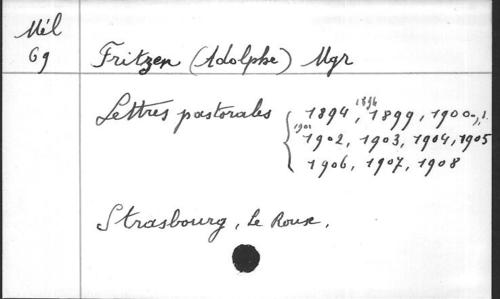 Mél
69
Fritzen (Adolphe) Mgr
Lettres pastorales
1894, 1896, 1899, 1900,
1901, 1902, 1903, 1904, 1905
1906, 1907, 1908
Strasbourg, Le Roux.